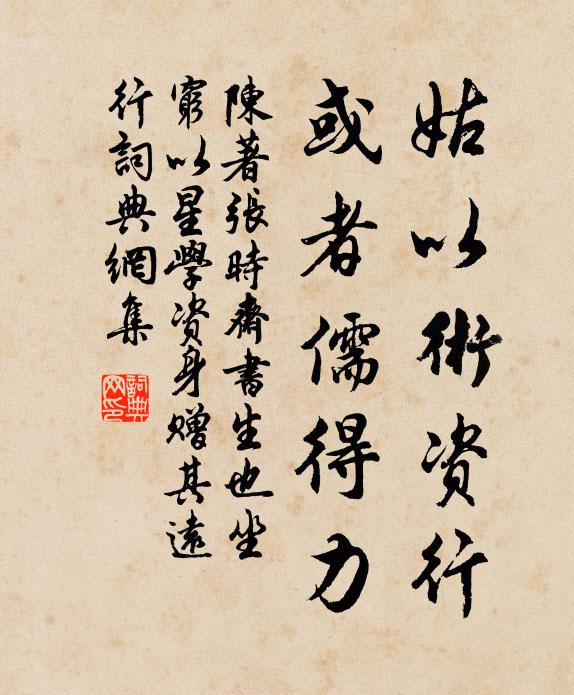 姑以術资行
或者儒得力
陳著張時齋書生也坐
窮以星學资身赠其遠
行詞典網集
詞典网印